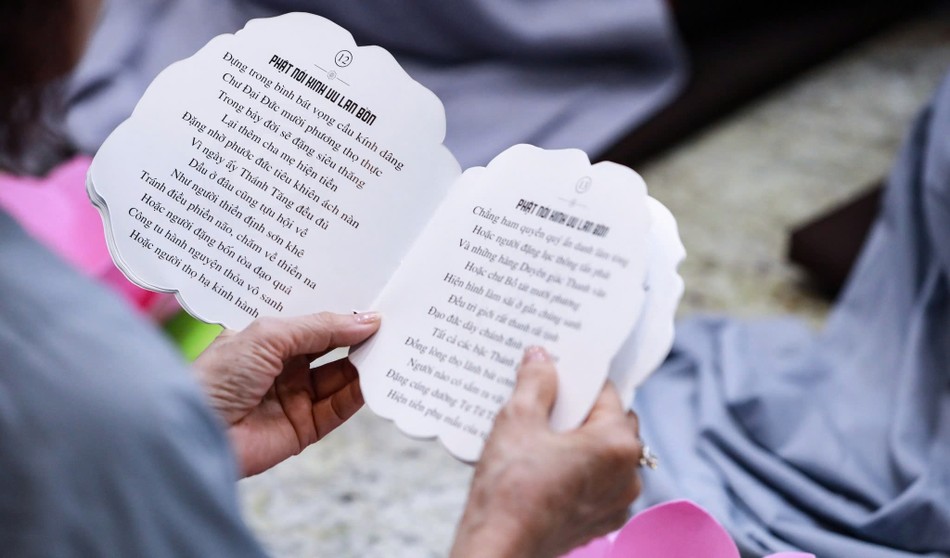 12
PHẬT NÓI KINH VU LAN BỒN
Đựng trong bình bát vọng cầu kính dâng
Chư Đại Đức mười phương thọ thực
Trong bảy đời sẽ đặng siêu thăng
Lại thêm cha mẹ hiện tiền
Đặng nhờ phước đức tiêu khiên ách nàn
Vì ngày ấy Thánh Tăng đều đủ
Dầu ở đâu cũng tựu hội về
Như người thiền định sơn khê
Tránh điều phiền não, chăm về thiền na
Hoặc người đặng bốn tòa đạo quả
Công tu hành nguyện thỏa vô sanh
Hoặc người thọ hạ kinh hành
PHẬT NÓI KINH VU LAN BỒN
Chẳng ham quyền quý ẩn danh lâm tòng
Hoặc người đặng lục thông tấn phát
Và những hàng Duyên giác Thanh văn
Hoặc chư Bồ tát mười phương
Hiện hình làm sãi ở gần chúng sanh
Đều trì giới rất thanh rất tịnh
Đạo đức dày chánh định
Tất cả các bậc Thánh
Đồng lòng thọ lãnh bát cơm
Người nào có sắm ra vật
Đặng cúng dường Tự Tứ
Hiện tiền phụ mẫu của